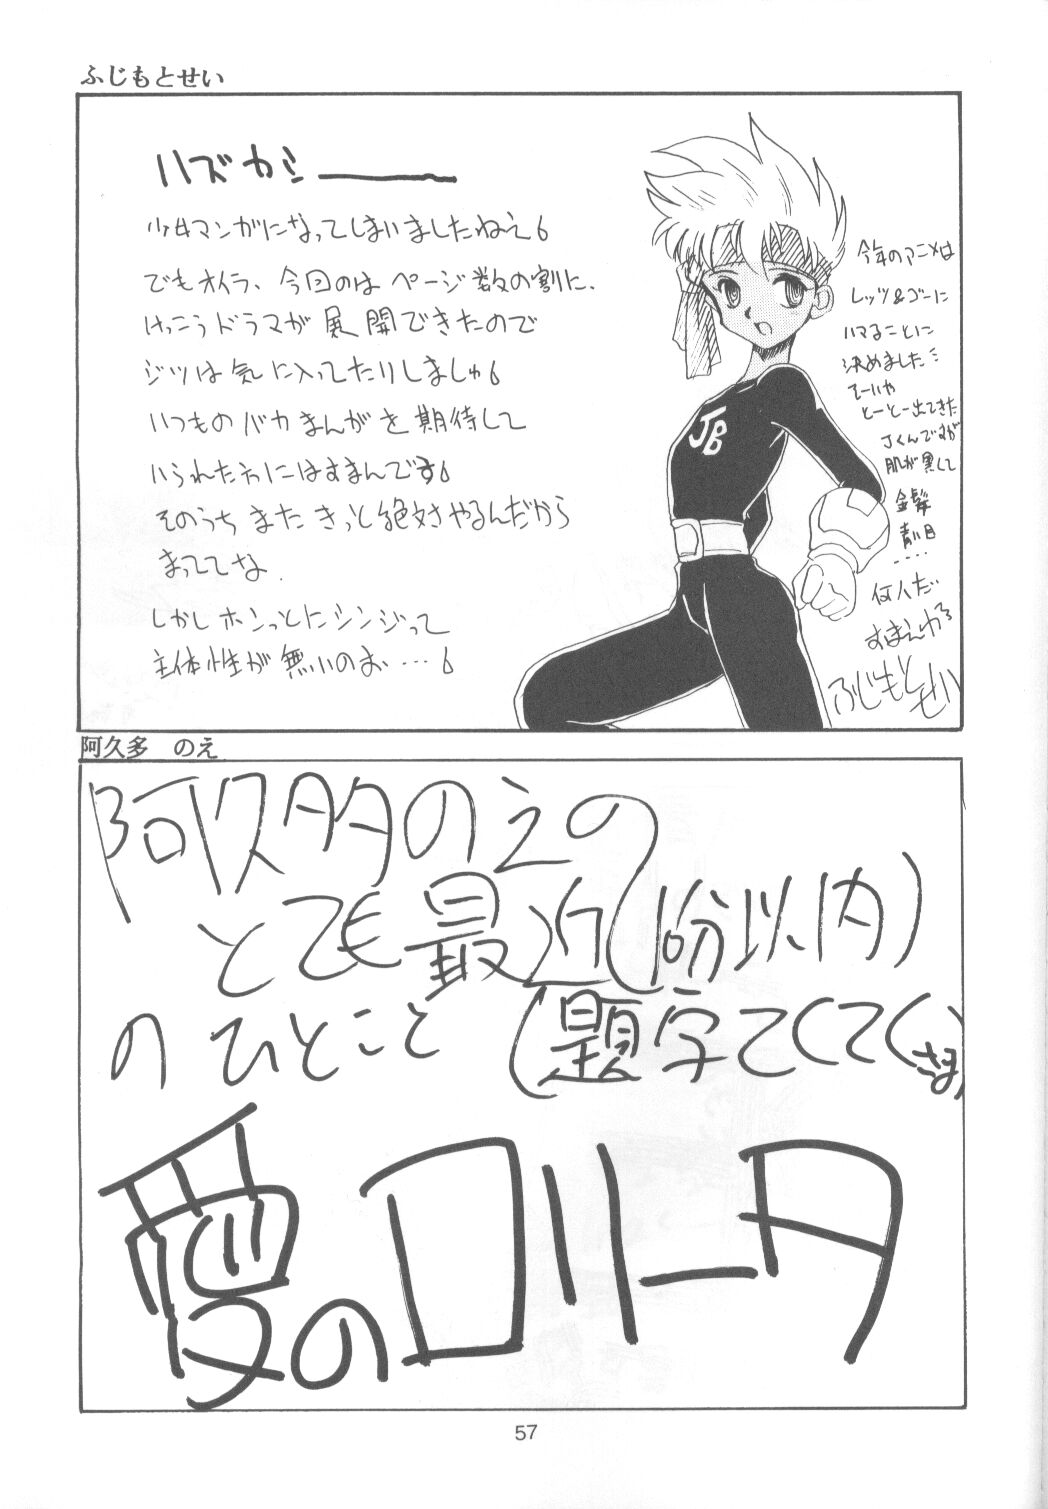 ふじもとせい
ハズカシ———
少女マンガになってしまいましたねえ6
でもオイラ、今回のは ページ数の割に、
けっこうドラマが 展開できたので
ジツは気に入ってたりしましゅ6
いつものバカまんがを期待して
いられた方にはすまんです6
そのうち またきっと絶対やるんだから
まっててな
しかしホンっとにシンジって
主体性が無いのお…6
JB
今年のアニメは
レッツ&ゴーに
ハマることに
決めました
てーいや
とーとー出てきた
Jくんですが
肌が黒くて
金髪
青い目
....
何人だ
すまんかろ
ふじもとせい
阿久多 のえ
阿久多のえの
とても最近(1分以内)
のひとこと(題字てくてくさま)
愛のロリータ
57